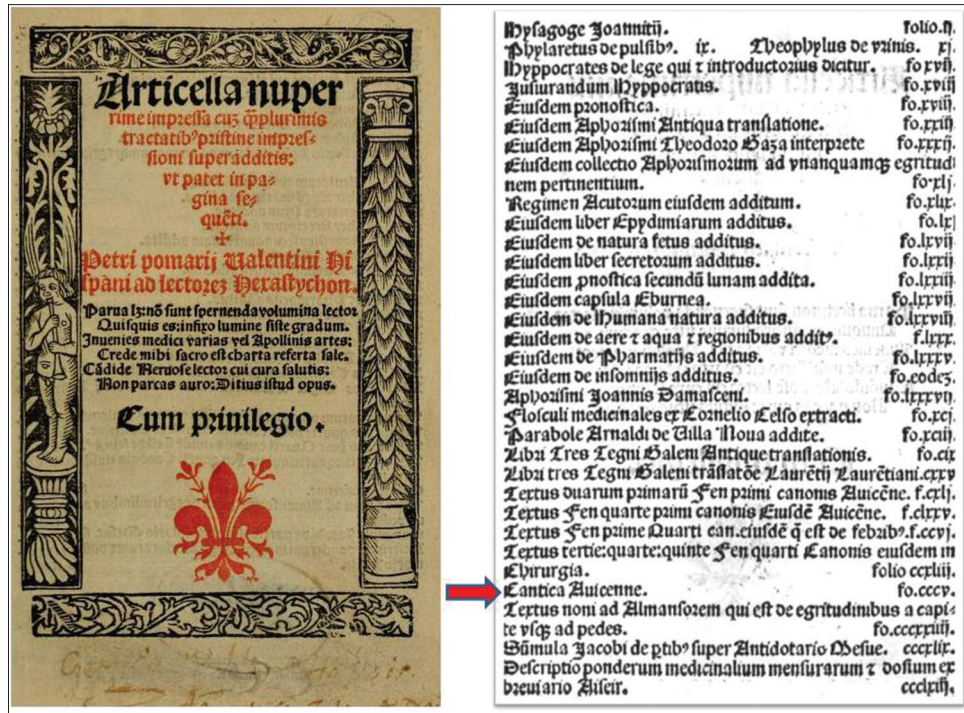 Articella nuper
rime impressa cuʒ q̃plurimis
tractatibꝰ pristine impres-
sioni superadditis:
vt patet in pa-
gina se-
quẽti.
Petri pomarij Ualentini Hi
spani ad lectoreʒ Hexastychon.
Parua lʒ: nõ sunt spernenda volumina lector
Quisquis es: infixo lumine siste gradum.
Inuenies medici varias vel Apollinis artes:
Crede mihi sacro est charta referta sale.
Cãdide Neruose lector: cui cura salutis:
Non parcas auro: Ditius istud opus.
Cum priuilegio.
Hysagoge Joannitij. folio.ij.
Phylaretus de pulsibꝰ. ix. Theophylus de vrinis. xj.
Hyppocrates de lege qui ⁊ introductorius dicitur. fo xvij.
Jusiurandum Hyppocratis. fo.xviij
Eiusdem pronostica. fo.xviij.
Eiusdem Aphorismi Antiqua translatione. fo.xxiij.
Eiusdem Aphorismi Theodoro Gaza interprete fo.xxxij.
Eiusdem collectio Aphorismorum ad vnanquamqʒ egritudi
nem pertinentium. fo.xlj.
Regimen Acutorum eiusdem additum. fo.xlix.
Eiusdem liber Epydimiarum additus. fo.lxj
Eiusdem de natura fetus additus. fo.lxvij
Eiusdem liber secretorum additus. fo.lxxij
Eiusdem ꝓnostica secundũ lunam addita. fo.lxxiiij
Eiusdem capsula Eburnea. fo.lxxvij
Eiusdem de Humana natura additus. fo.lxxviij
Eiusdem de aere ⁊ aqua ⁊ regionibus additꝰ. f.lxxx.
Eiusdem de Pharmatijs additus. fo.lxxxv.
Eiusdem de insomnijs additus. fo.eodeʒ.
Aphorismi Joannis Damasceni. fo.lxxxvij.
Flosculi medicinales ex Cornelio Celso extracti. fo.xcj.
Parabole Arnaldi de Uilla Noua addite. fo.xciij.
Libri Tres Tegni Galeni Antique translationis. fo.cix
Libri tres Tegni Galeni trãslatõe Laurẽtij Laurẽtiani. cxxv
Textus duarum primarũ Fen primi canonis Auicẽne. f.cxlj.
Textus Fen quarte primi canonis Eiusdẽ Auicẽne. f.clxxv.
Textus Fen prime Quarti can. eiusdẽ q̃ est de febribꝰ. f.ccvj.
Textus tertie: quarte: quinte Fen quarti Canonis eiusdem in
Chirurgia. folio ccxliij.
Cantica Auicenne. fo.cccv.
Textus noni ad Almansorem qui est de egritudinibus a capi-
te vsqʒ ad pedes. fo.cccxxiiij.
Sũmula Jacobi de ꝑtibꝰ super Antidotario Mesue. cccxlix.
Descriptio ponderum medicinalium mensurarum ⁊ dosium ex
breuiario Aiseir. ccclxiij.